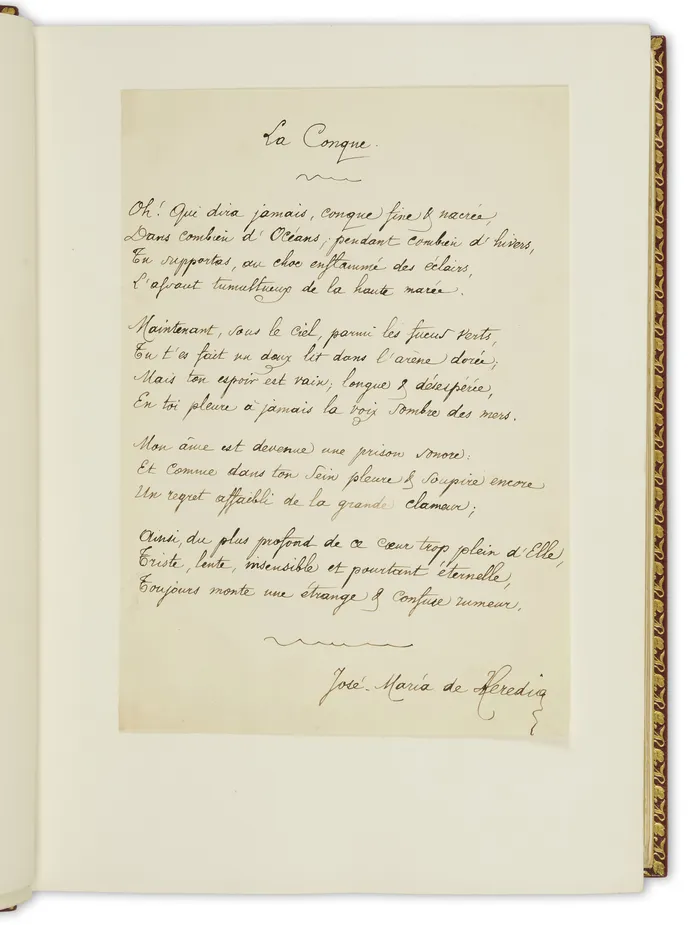 La Conque.
Oh! Qui dira jamais, conque fine & nacrée,
Dans combien d'Océans, pendant combien d'hivers,
Tu supportas, au choc enflammé des éclairs,
L'assaut tumultueux de la haute marée.
Maintenant, sous le ciel, parmi les fucus verts,
Tu t'es fait un doux lit dans l'arène dorée;
Mais ton espoir est vain; longue & désespérée,
En toi pleure à jamais la voix sombre des mers.
Mon âme est devenue une prison sonore:
Et comme dans ton sein pleure & soupire encore
Un regret affaibli de la grande clameur;
Ainsi, du plus profond de ce cœur trop plein d'Elle,
Triste, lente, insensible et pourtant éternelle,
Toujours monte une étrange & confuse rumeur.
José-María de Heredia